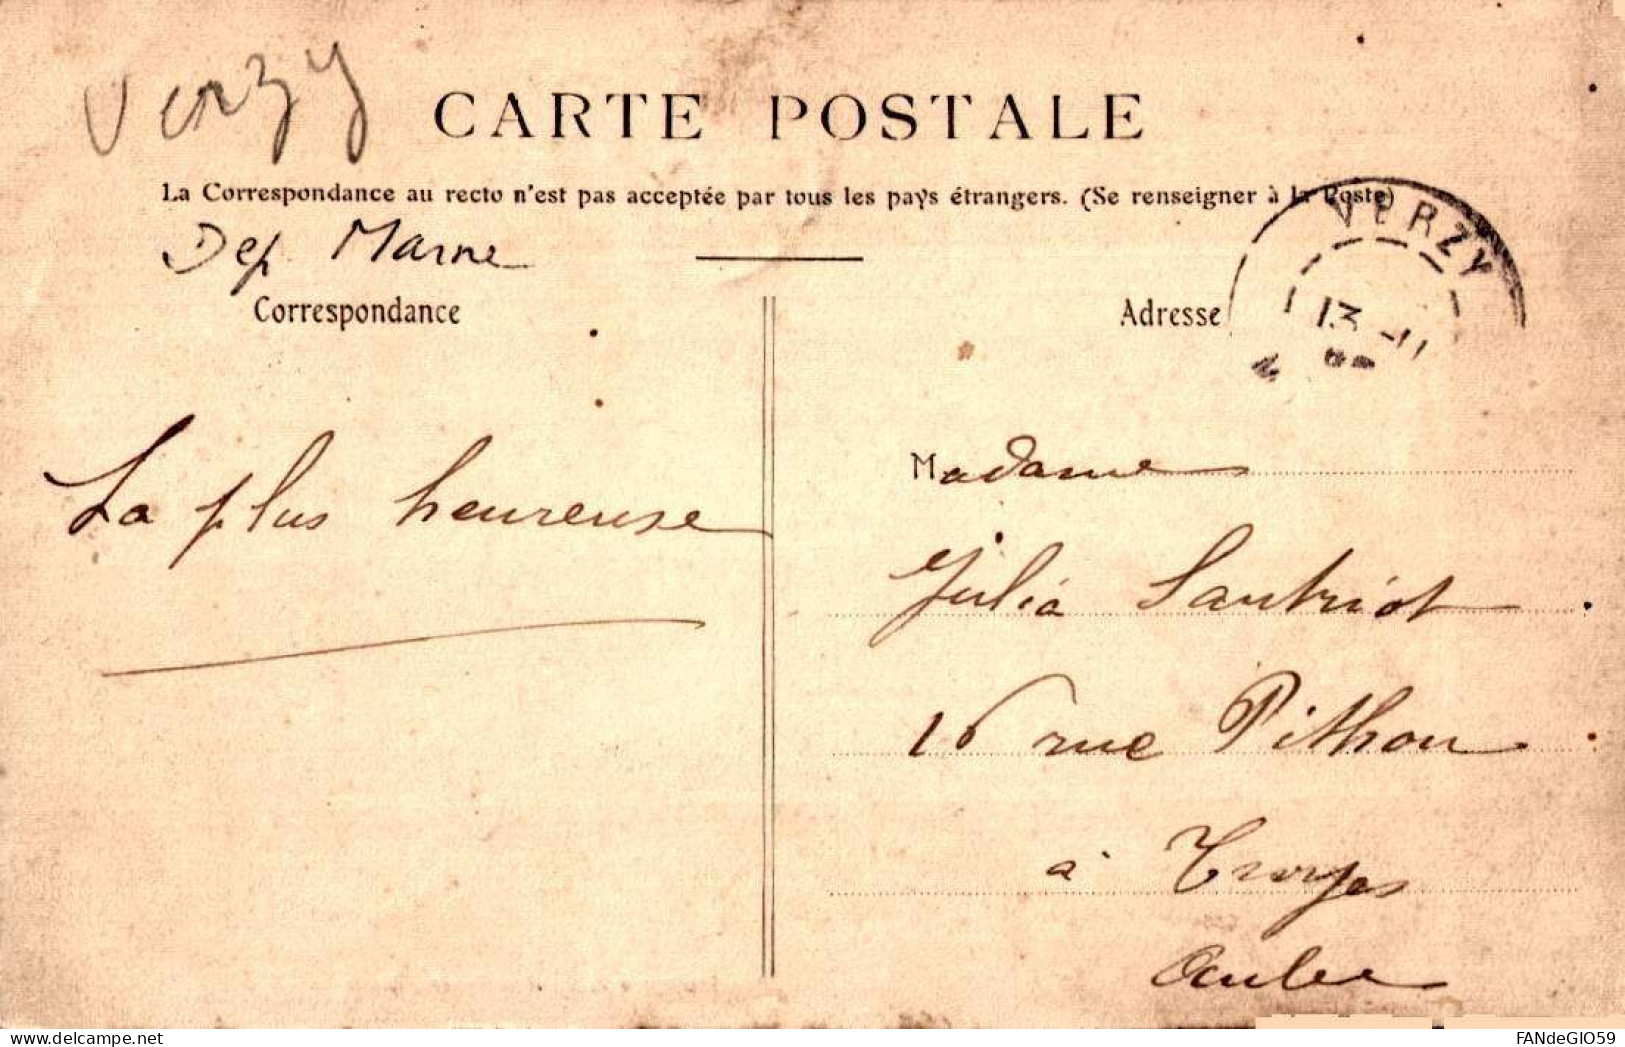 Verzy
CARTE POSTALE
La Correspondance au recto n'est pas acceptée par tous les pays étrangers. (Se renseigner à la Poste)
Dep Marne
Correspondance
Adresse
VERZY
13 -11
La plus heureuse
Madame
Julia Sautriot
16 rue Pithou
à Troyes
Aube
www.delcampe.net
FANdeGIO59